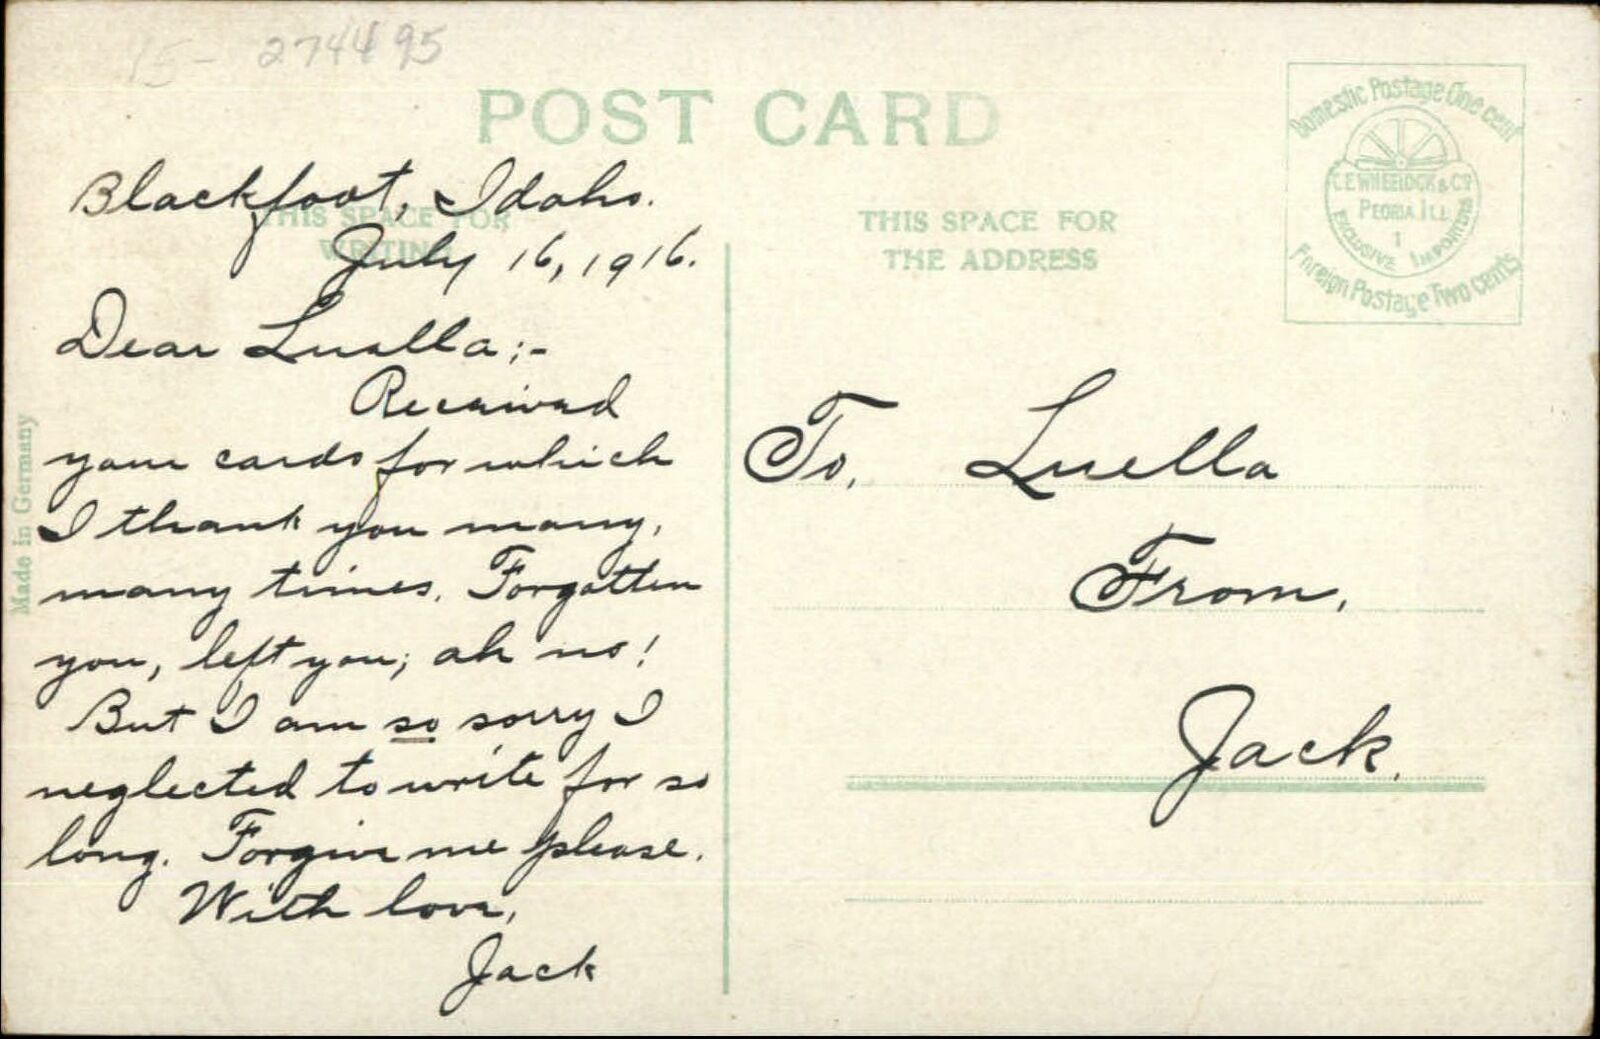 15- 274495
POST CARD
Blackfoot, Idaho.
THIS SPACE FOR
WRITING
July 16, 1916.
Dear Luella;-
Received
your cards for which
I thank you many,
many times. Forgotten
you, left you; ah no!
But I am so sorry I
neglected to write for so
long. Forgive me please.
With love,
Jack
Made in Germany
THIS SPACE FOR
THE ADDRESS
Domestic Postage One cent
C.E. WHEELOCK & CO
PEORIA ILL
1
EXCLUSIVE IMPORTERS
Foreign Postage Two cents
To, Luella
From,
Jack.